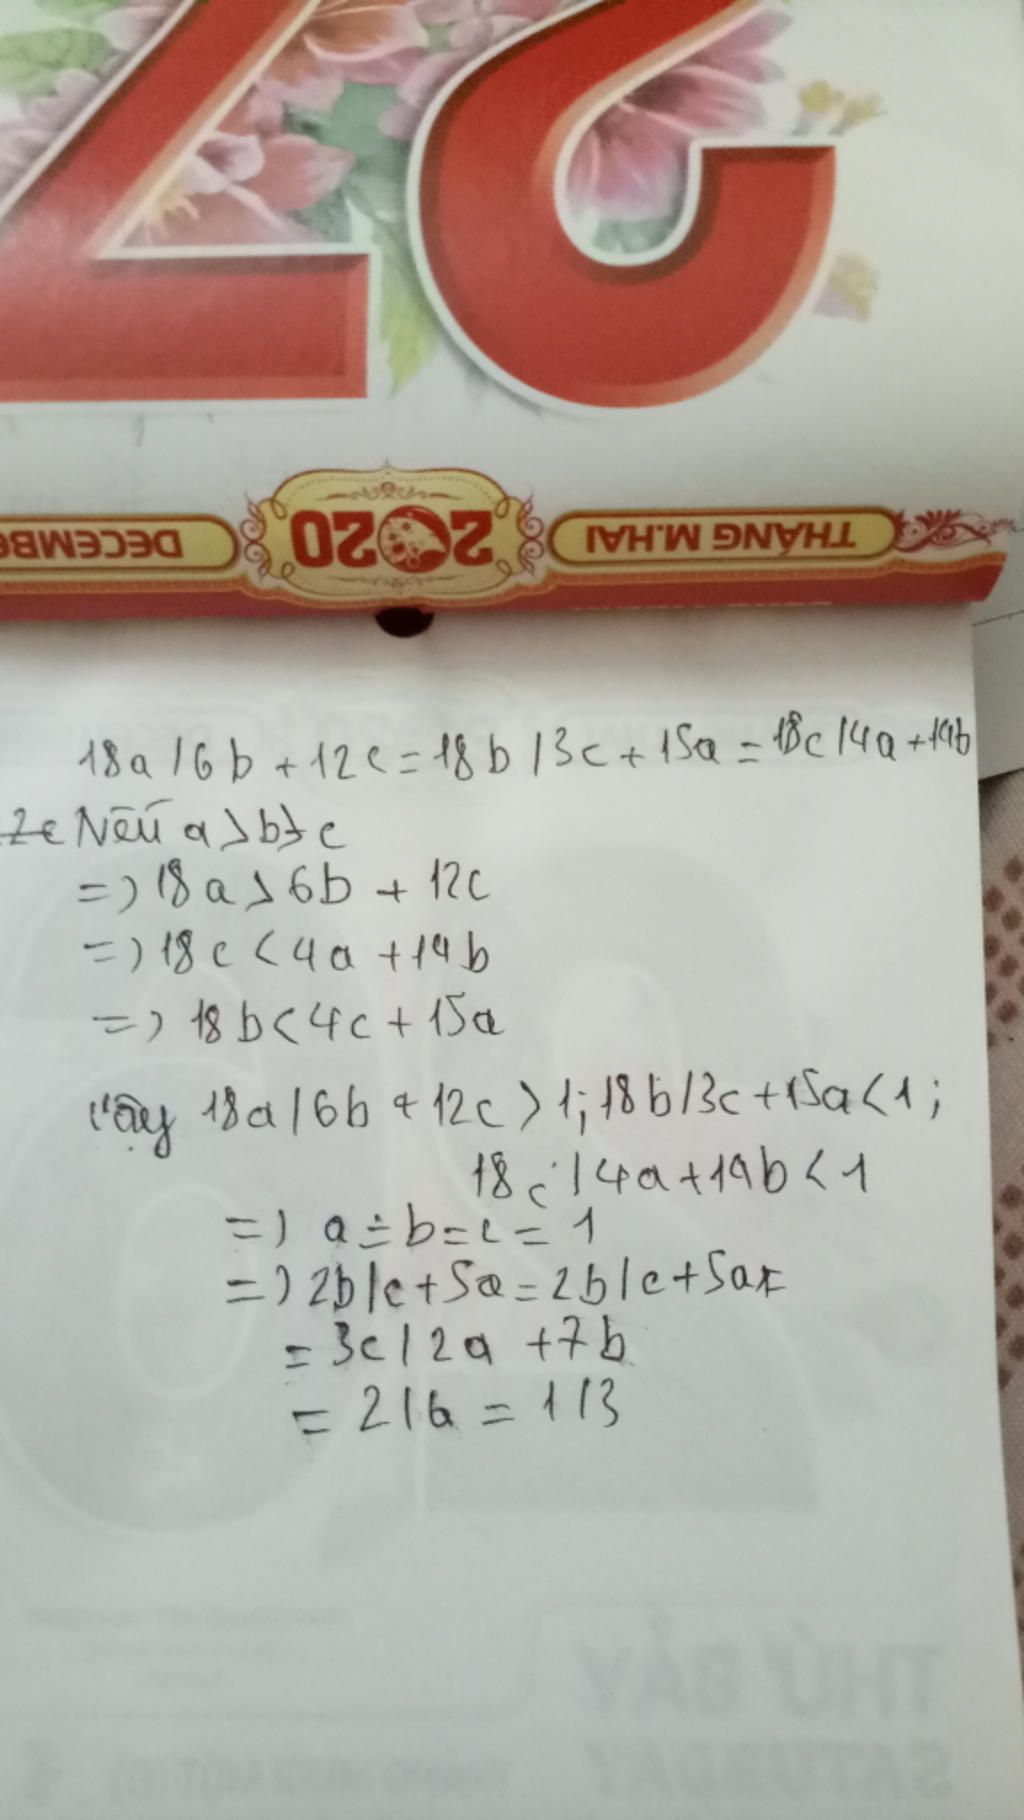 27
DECEMBE 2020 THÁNG M.HAI
18a/6b + 12c = 18b/3c + 15a = 18c/4a + 14b
Nếu a > b > c
=> 18a > 6b + 12c
=> 18c < 4a + 14b
=> 18b < 4c + 15a
Vậy 18a/6b + 12c > 1; 18b/3c + 15a < 1;
18c/4a + 14b < 1
=> a = b = c = 1
=> 2b/c + 5a = 2b/c + 5a =
= 3c/2a + 7b
= 2/6 = 1/3
THỨ BẢY
SATURDAY